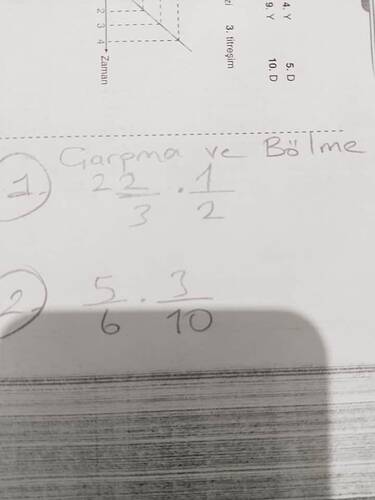 4. Y
5. D
9. Y
10. D
3. titreşim
2
3
4
Zaman
Çarpma ve Bölme
1. 2 2/3 . 1/2
2. 5/6 . 3/10